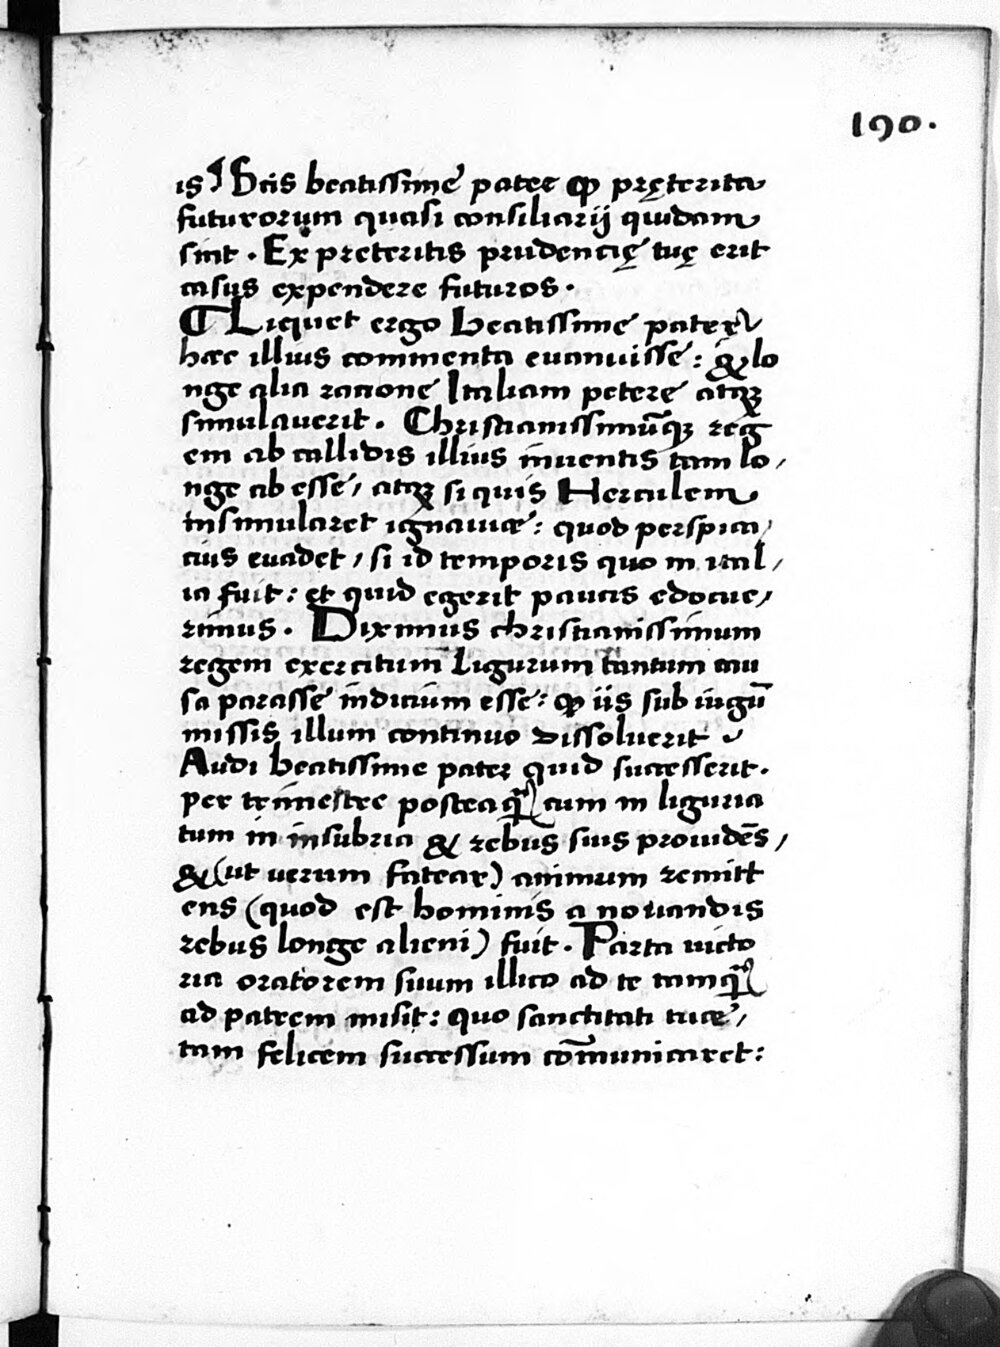 190.
is? Scis beatissime pater ꝙ pręterita
futurorum quasi consiliarij quidam
sint. Ex preteritis prudencię tuę erit
casus expendere futuros.
¶ Liquet ergo beatissime pater
hæc illius commenta euanuisse: & lo
nge alia racione Italiam petere atqꝫ
simulauerit. Christianissimūqꝫ reg
em ab callidis illius inuentis tam lo,
nge ab esse, atqꝫ si quis Herculem
insimularet ignauiæ: quod perspica,
cius euadet, si id temporis quo in ital,
ia fuit: et quid egerit paucis edocue,
rimus. Diximus christianissimum
regem exercitum Ligurum tantum cau
sa parasse indicium esse: ꝙ iis sub iugū
missis illum continuo dissoluerit.
Audi beatissime pater quid successerit.
per trimestre posteaq̃ cum in liguria
tum in insubria & rebus suis prouidēs,
& (ut uerum fatear) animum remitt
ens (quod est hominis a nouandis
rebus longe alieni) fuit. Parta uicto
ria oratorem suum illico ad te tamq̃
ad patrem misit: quo sanctitati tuæ,
tam felicem successum com̄unicaret: